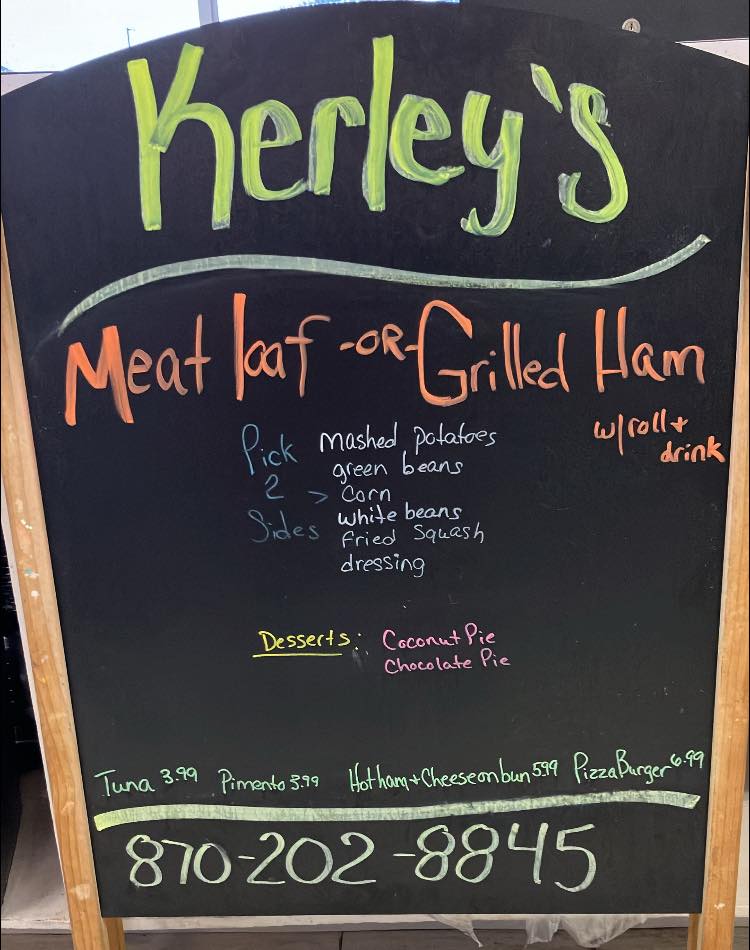 Kerley's
Meat loaf -OR- Grilled Ham
w/roll+
drink
Pick
2 >
Sides
mashed potatoes
green beans
Corn
white beans
Fried Squash
dressing
Desserts: Coconut Pie
Chocolate Pie
Tuna 3.99 Pimento 3.99 Hot ham+Cheese on bun 5.99 Pizza Burger 6.99
870-202-8845